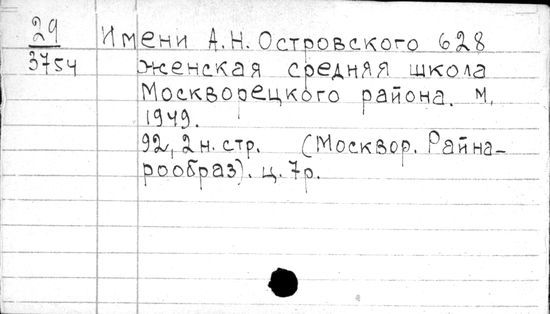 29 Имени А.Н. Островского 628
3754 женская средняя школа
Москворецкого района. М.
1949.
92, 2 н. стр. (Москвор. Райна-
рообраз). ц. 7р.